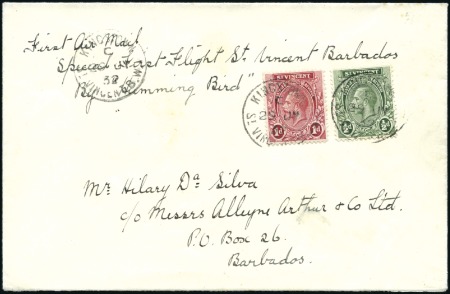 First Air Mail
Special First Flight St. Vincent Barbados
By "Humming Bird"
KINGS
C
32
ST VINCENT
1d 1d
½d ½d
KINGS
Mr Hilary Da Silva
c/o Messrs Alleyne Arthur & Co Ltd.
P.O. Box 26.
Barbados.